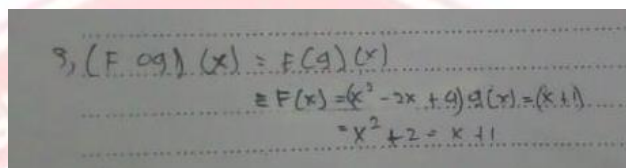 9, (F og) (x) = F(g) (x)
= F(x) = (x² - 2x + 9) g(x) = (x + 1)
= x² + 2 = x + 1